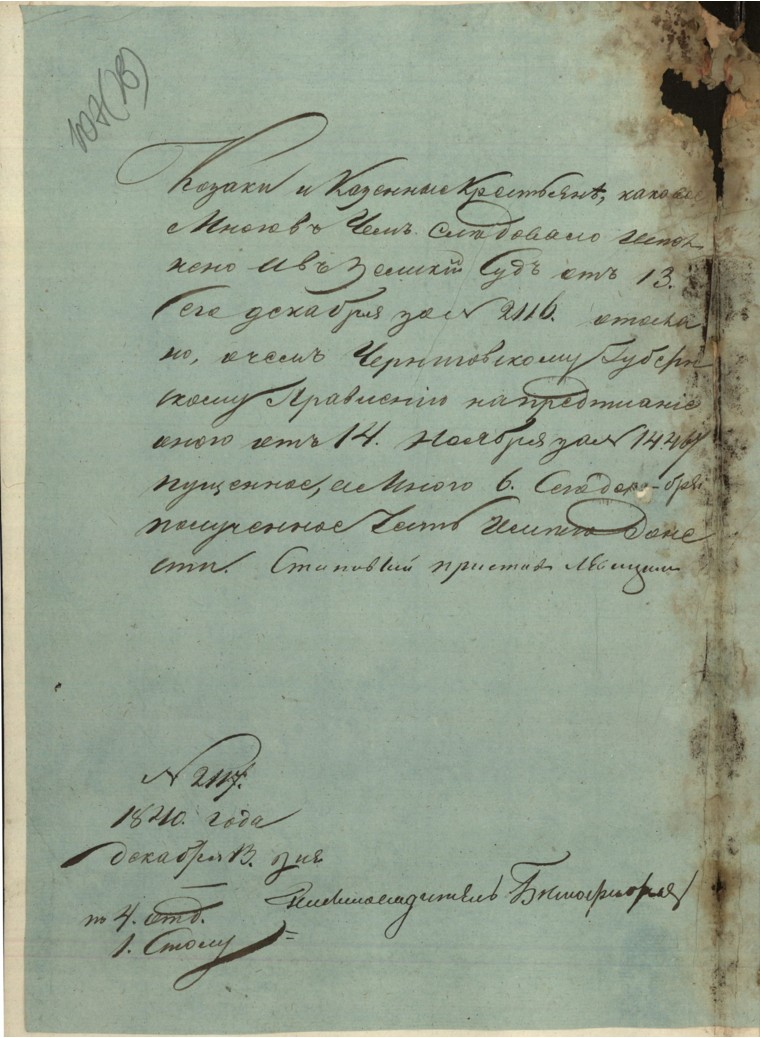 107(78)
Козаки и Казенные Крестьяне, каковое
Мною въ Чемъ следовало испол
нено и въ Земский Судъ отъ 13.
Сего декабря за № 2116. отосла
но, о чемъ Черниговскому Губерн
скому Правлению на предписание
оного отъ 14. Ноября за №
пущенное, а Мною 6. Сего декабря
полученное Честь имею Доне
сти. Становый пристав
№ 2117.
1840. года
декабря 13. дня
по 4. отд.
1. Столу